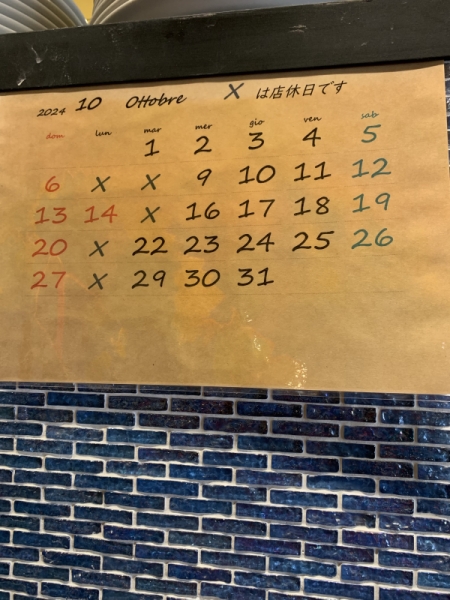 2024 10 Ottobre X は店休日です
dom lun mar mer gio ven sab
1 2 3 4 5
6 X X 9 10 11 12
13 14 X 16 17 18 19
20 X 22 23 24 25 26
27 X 29 30 31